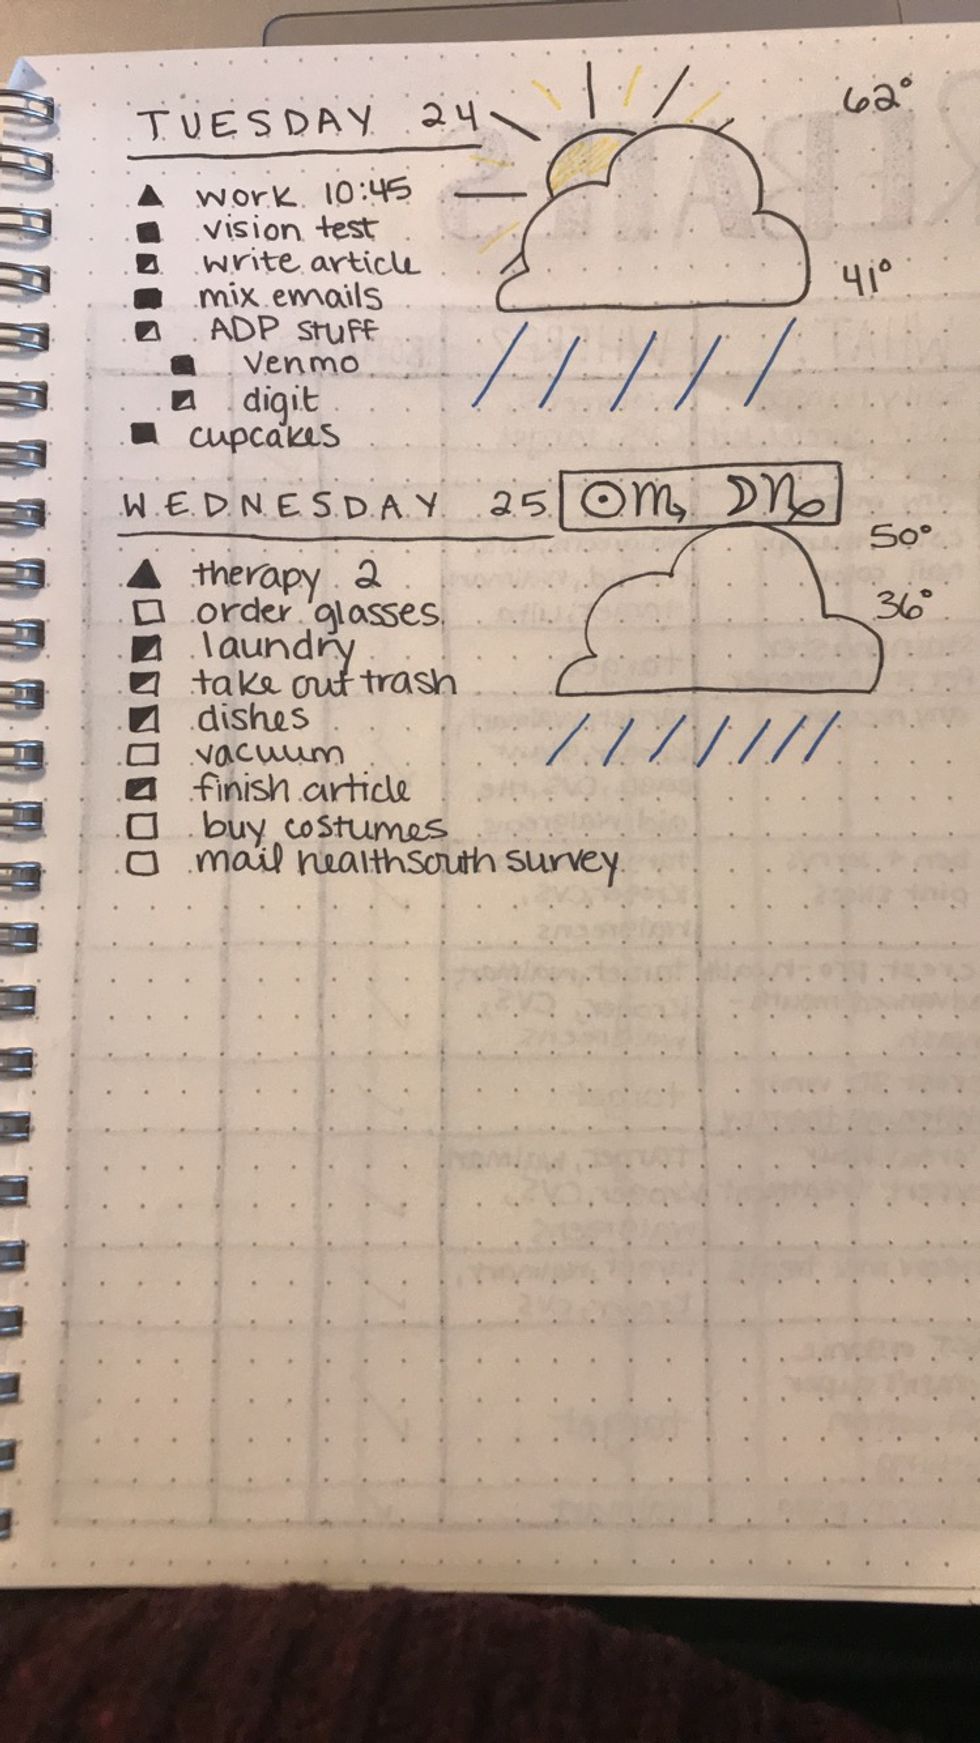 TUESDAY 24
62°
▲ work 10:45
■ vision test
◪ write article
41°
■ mix emails
◪ ADP stuff
■ venmo
◪ digit
■ cupcakes
WEDNESDAY 25 ☉♏ ☽♑
50°
▲ therapy 2
36°
□ order glasses
◪ laundry
◪ take out trash
◪ dishes
□ vacuum
◪ finish article
□ buy costumes
□ mail healthsouth survey